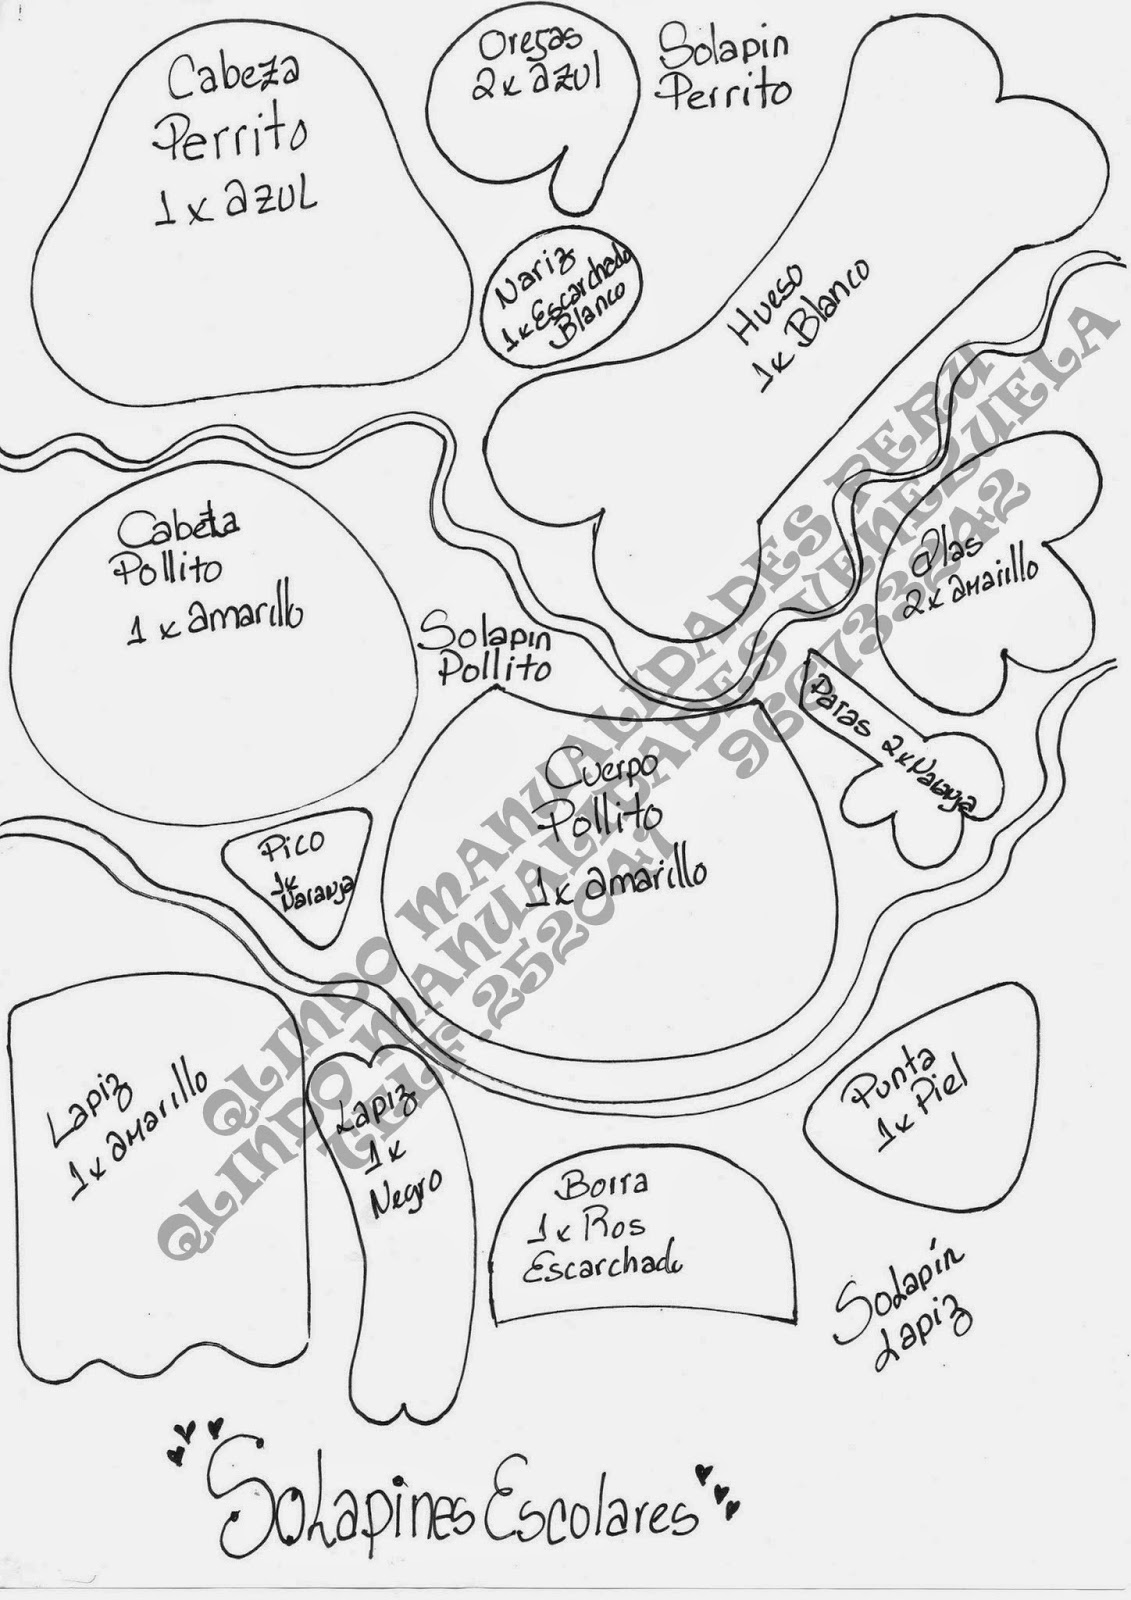 Cabeza
Perrito
1 x azul
Orejas
2 x azul
Solapin
Perrito
Nariz
1 x Escarchado
Blanco
Hueso
1 x Blanco
Cabeza
Pollito
1 x amarillo
Solapin
Pollito
Alas
2 x amarillo
Patas 2 x Naranja
Cuerpo
Pollito
1 x amarillo
Pico
1 x
Naranja
Lapiz
1 x amarillo
Lapiz
1 x
Negro
Borra
1 x Ros
Escarchado
Punta
1 x Piel
Solapín
Lapiz
Solapines Escolares
QLINDO MANUALIDADES PERU
QLINDO MANUALIDADES VENEZUELA
TELF. 252041 966733242